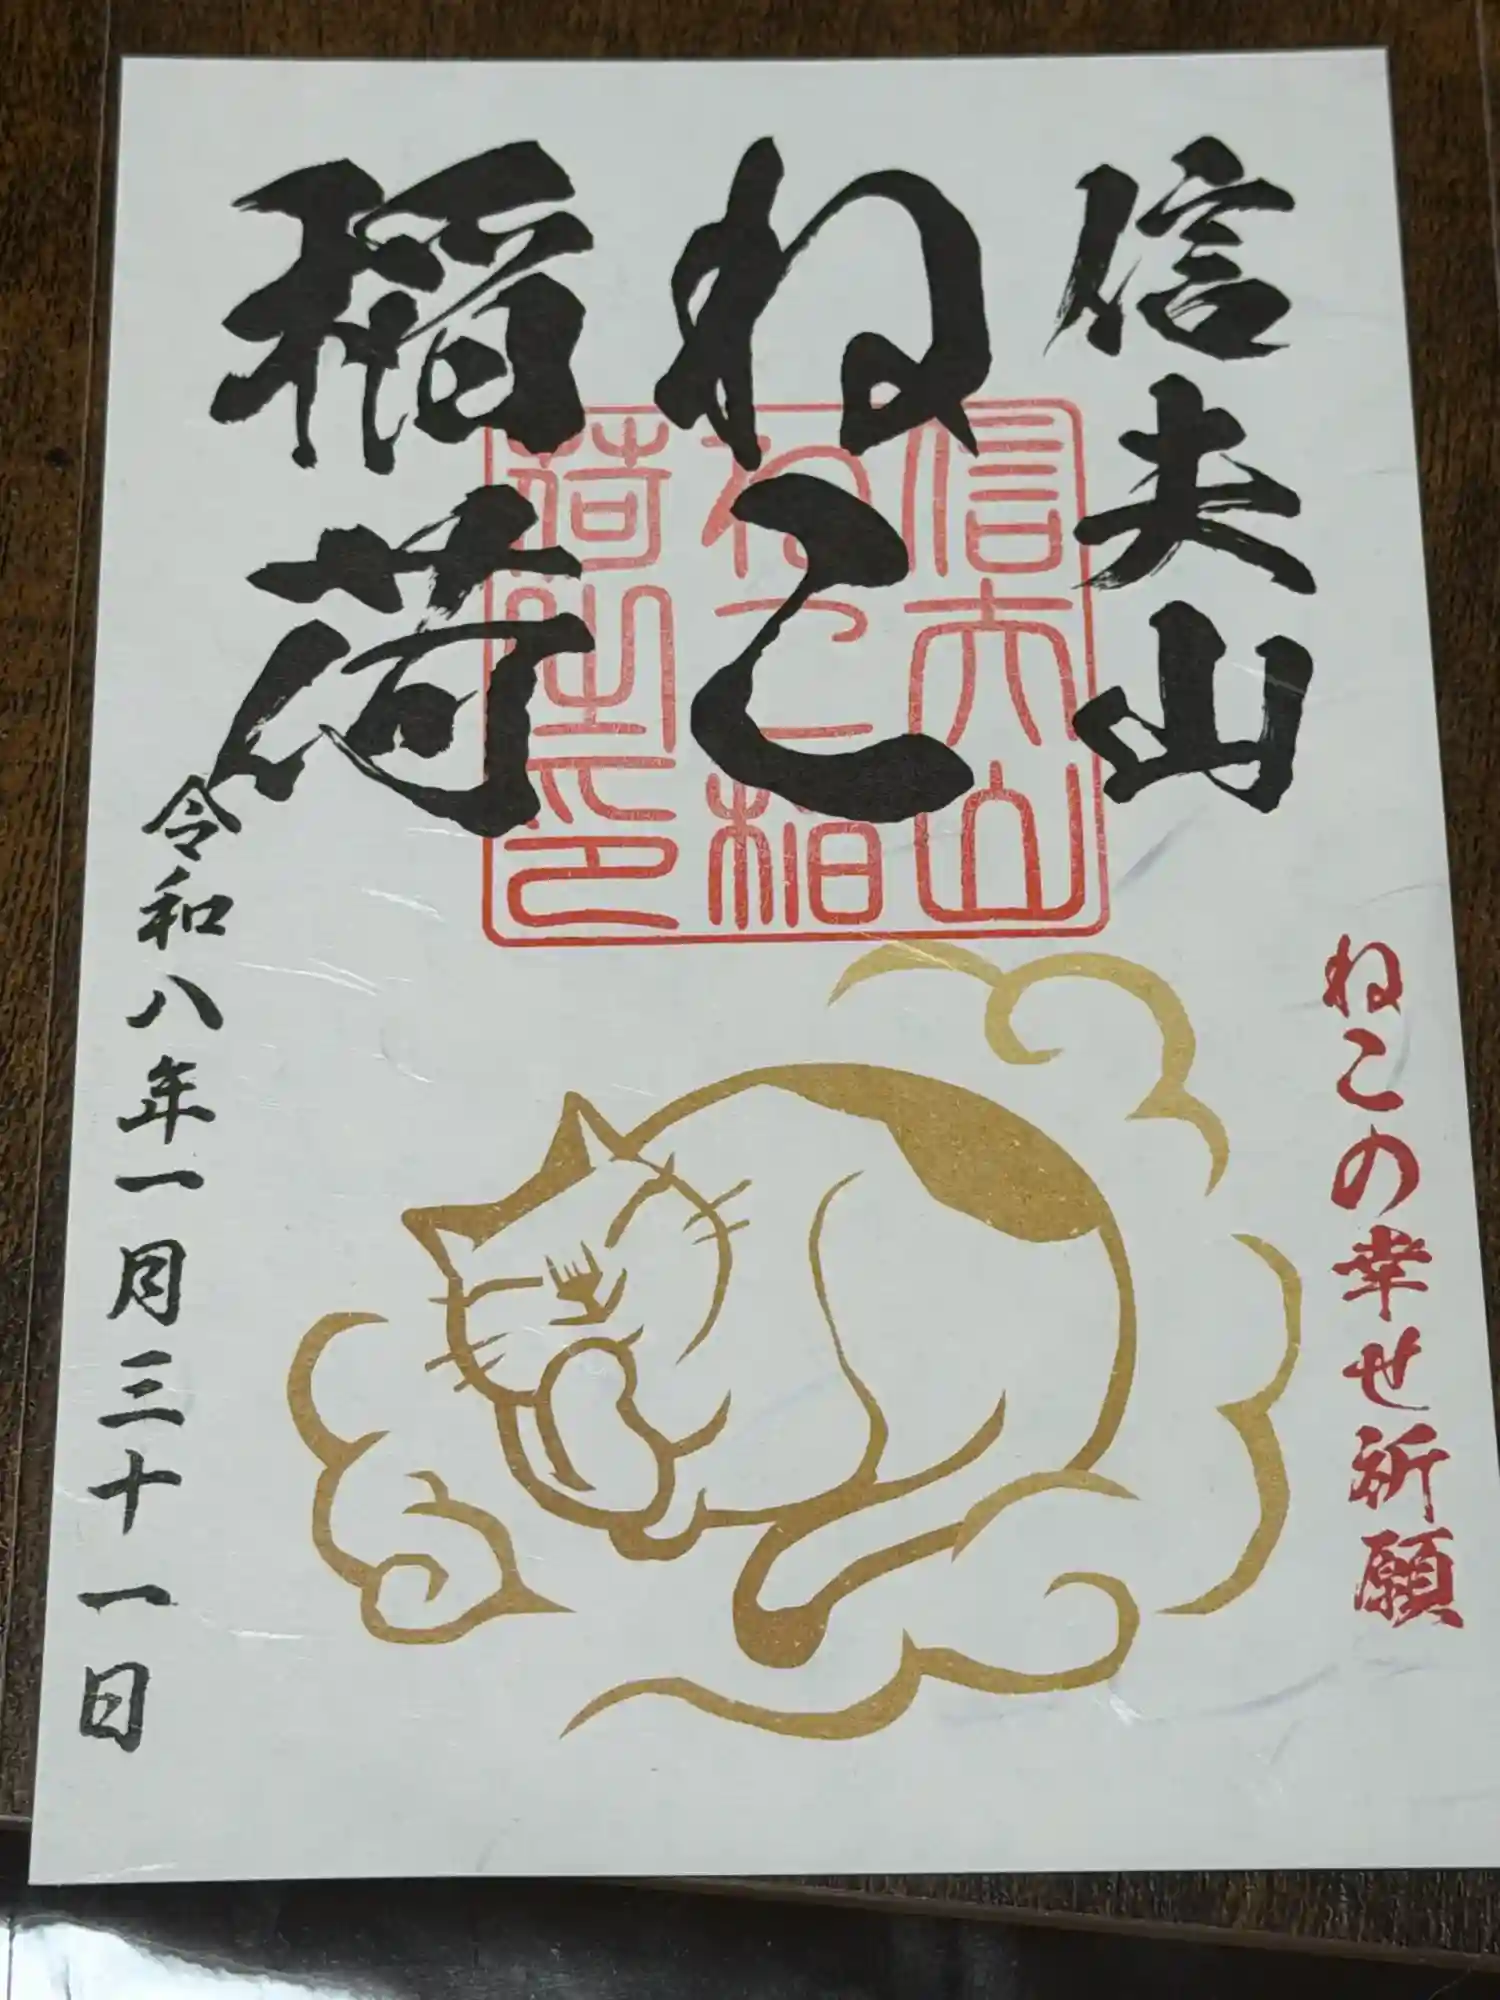 信夫山
ねこ
稲荷
信夫山
ねこ稲
荷之印
ねこの幸せ祈願
令和八年一月三十一日